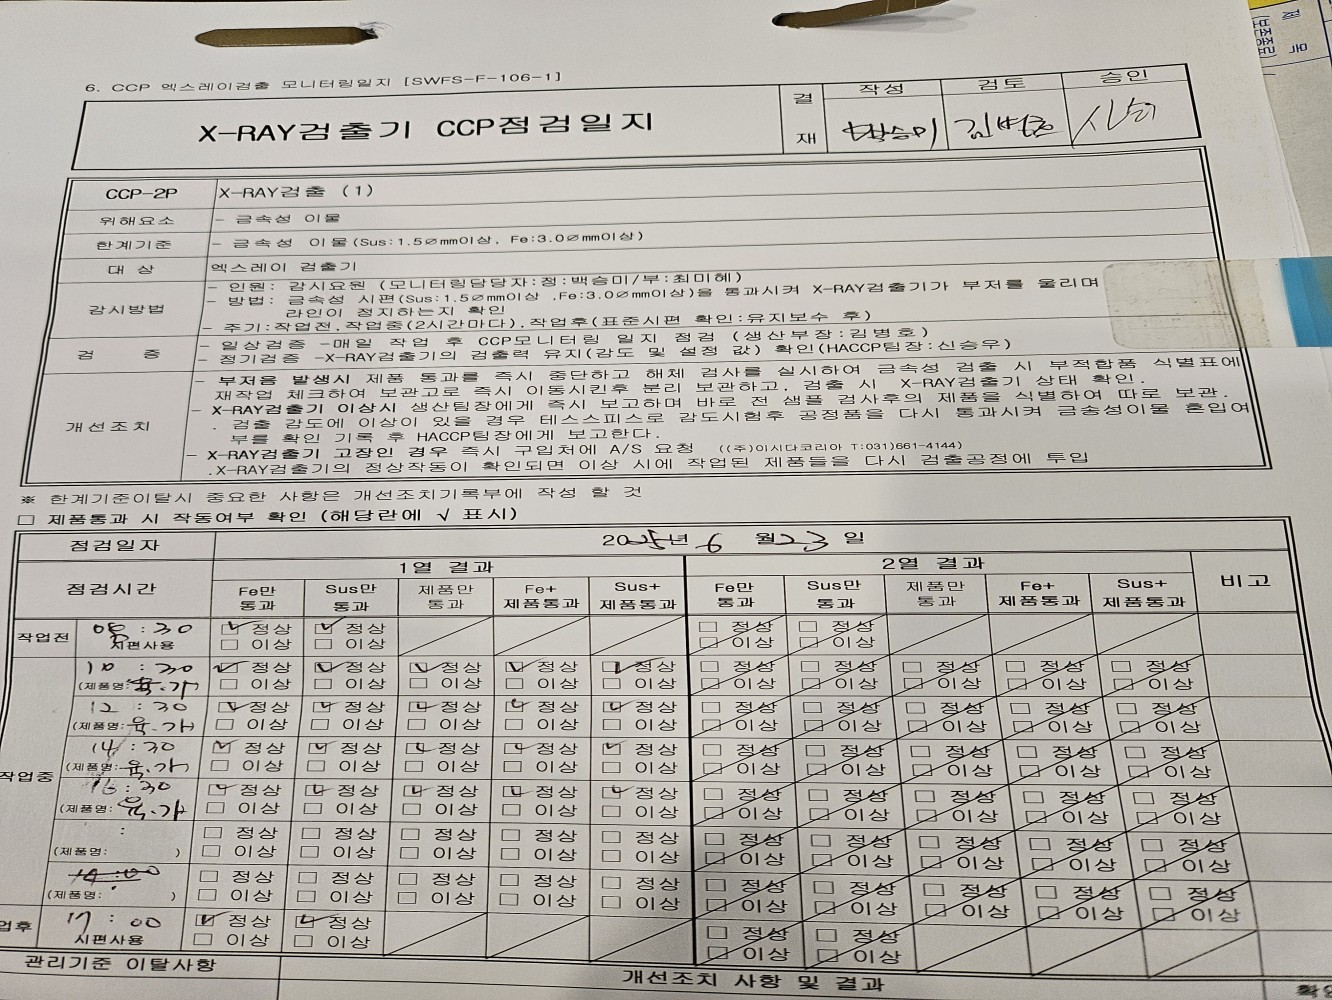 6. CCP 엑스레이검출 모니터링일지 [SWFS-F-106-1]
X-RAY검출기 CCP점검일지
결재 작성 검토 승인
백승미 김병호
CCP-2P X-RAY검출 (1)
위해요소 - 금속성 이물
한계기준 - 금속성 이물(Sus:1.5∅mm이상, Fe:3.0∅mm이상)
대 상 엑스레이 검출기
감시방법 - 인원: 감시요원 (모니터링담당자:정:백승미/부:최미혜)
- 방법: 금속성 시편(Sus:1.5∅mm이상 ,Fe:3.0∅mm이상)을 통과시켜 X-RAY검출기가 부저를 울리며
라인이 정지하는지 확인
- 주기:작업전,작업중(2시간마다),작업후(표준시편 확인:유지보수 후)
검 증 - 일상검증 -매일 작업 후 CCP모니터링 일지 점검 (생산부장:김병호)
- 정기검증 -X-RAY검출기의 검출력 유지(감도 및 설정 값) 확인(HACCP팀장:신승우)
개선조치 - 부저음 발생시 제품 통과를 즉시 중단하고 해체 검사를 실시하여 금속성 검출 시 부적합품 식별표에
재작업 체크하여 보관고로 즉시 이동시킨후 분리 보관하고, 검출 시 X-RAY검출기 상태 확인.
- X-RAY검출기 이상시 생산팀장에게 즉시 보고하며 바로 전 샘플 검사후의 제품을 식별하여 따로 보관.
. 검출 감도에 이상이 있을 경우 테스스피스로 감도시험후 공정품을 다시 통과시켜 금속성이물 혼입여
부를 확인 기록 후 HACCP팀장에게 보고한다.
- X-RAY검출기 고장인 경우 즉시 구입처에 A/S 요청 ((주)이시다코리아 T:031)661-4144)
.X-RAY검출기의 정상작동이 확인되면 이상 시에 작업된 제품들을 다시 검출공정에 투입
※ 한계기준이탈시 중요한 사항은 개선조치기록부에 작성 할 것
□ 제품통과 시 작동여부 확인 (해당란에 √ 표시)
점검일자 2025년 6 월 23 일
점검시간 1열 결과 2열 결과 비고
Fe만 통과 Sus만 통과 제품만 통과 Fe+ 제품통과 Sus+ 제품통과 Fe만 통과 Sus만 통과 제품만 통과 Fe+ 제품통과 Sus+ 제품통과
작업전 08 : 30 ☑ 정상 ☑ 정상 □ 정상 □ 정상
시편사용 □ 이상 □ 이상 □ 이상 □ 이상
작업중
10 : 30 ☑ 정상 ☑ 정상 ☑ 정상 ☑ 정상 ☑ 정상 □ 정상 □ 정상 □ 정상 □ 정상 □ 정상
(제품명: □ 이상 □ 이상 □ 이상 □ 이상 □ 이상 □ 이상 □ 이상 □ 이상 □ 이상 □ 이상
12 : 30 ☑ 정상 ☑ 정상 ☑ 정상 ☑ 정상 ☑ 정상 □ 정상 □ 정상 □ 정상 □ 정상 □ 정상
(제품명: □ 이상 □ 이상 □ 이상 □ 이상 □ 이상 □ 이상 □ 이상 □ 이상 □ 이상 □ 이상
14 : 30 ☑ 정상 ☑ 정상 ☑ 정상 ☑ 정상 ☑ 정상 □ 정상 □ 정상 □ 정상 □ 정상 □ 정상
(제품명: □ 이상 □ 이상 □ 이상 □ 이상 □ 이상 □ 이상 □ 이상 □ 이상 □ 이상 □ 이상
16 : 30 ☑ 정상 ☑ 정상 ☑ 정상 ☑ 정상 ☑ 정상 □ 정상 □ 정상 □ 정상 □ 정상 □ 정상
(제품명: □ 이상 □ 이상 □ 이상 □ 이상 □ 이상 □ 이상 □ 이상 □ 이상 □ 이상 □ 이상
: □ 정상 □ 정상 □ 정상 □ 정상 □ 정상 □ 정상 □ 정상 □ 정상 □ 정상 □ 정상
(제품명: ) □ 이상 □ 이상 □ 이상 □ 이상 □ 이상 □ 이상 □ 이상 □ 이상 □ 이상 □ 이상
: □ 정상 □ 정상 □ 정상 □ 정상 □ 정상 □ 정상 □ 정상 □ 정상 □ 정상 □ 정상
(제품명: ) □ 이상 □ 이상 □ 이상 □ 이상 □ 이상 □ 이상 □ 이상 □ 이상 □ 이상 □ 이상
업후 17 : 00 ☑ 정상 ☑ 정상 □ 정상 □ 정상
시편사용 □ 이상 □ 이상 □ 이상 □ 이상
관리기준 이탈사항 개선조치 사항 및 결과